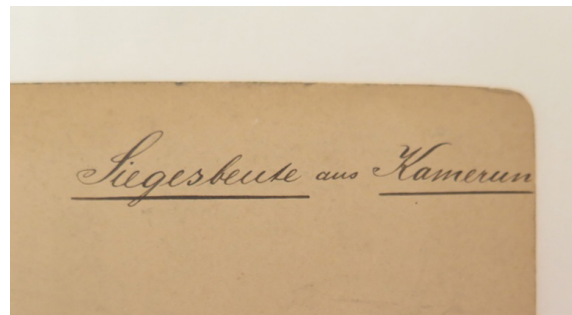 Siegesbeute aus Kamerun